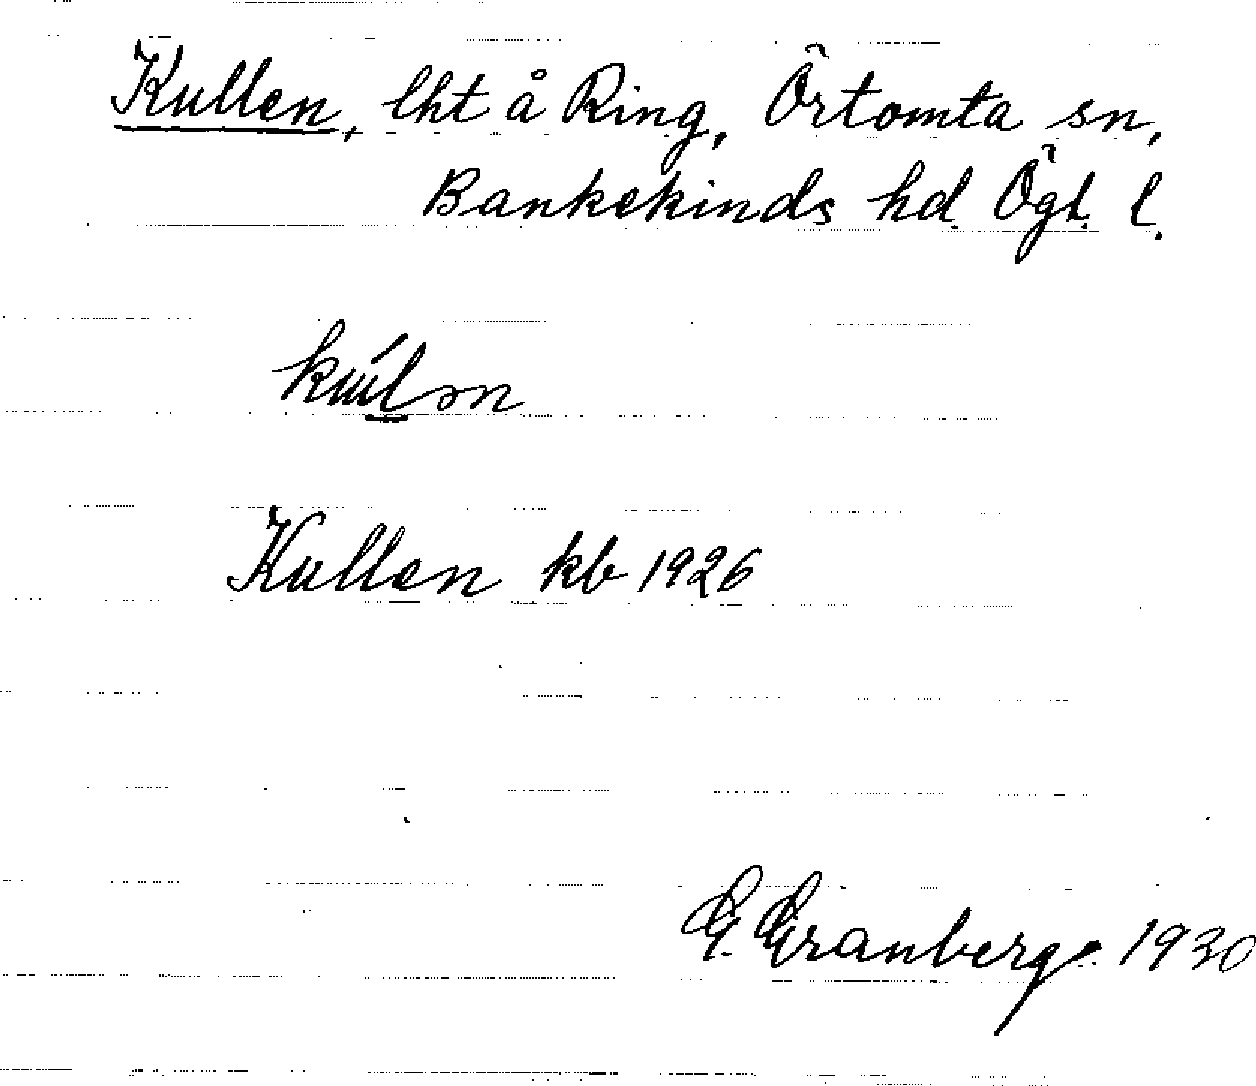 Kullen, lht å Ring, Örtomta sn,
Bankekinds hd. Ögt. l.
Kullen kb 1926
G. Granberg. 1930